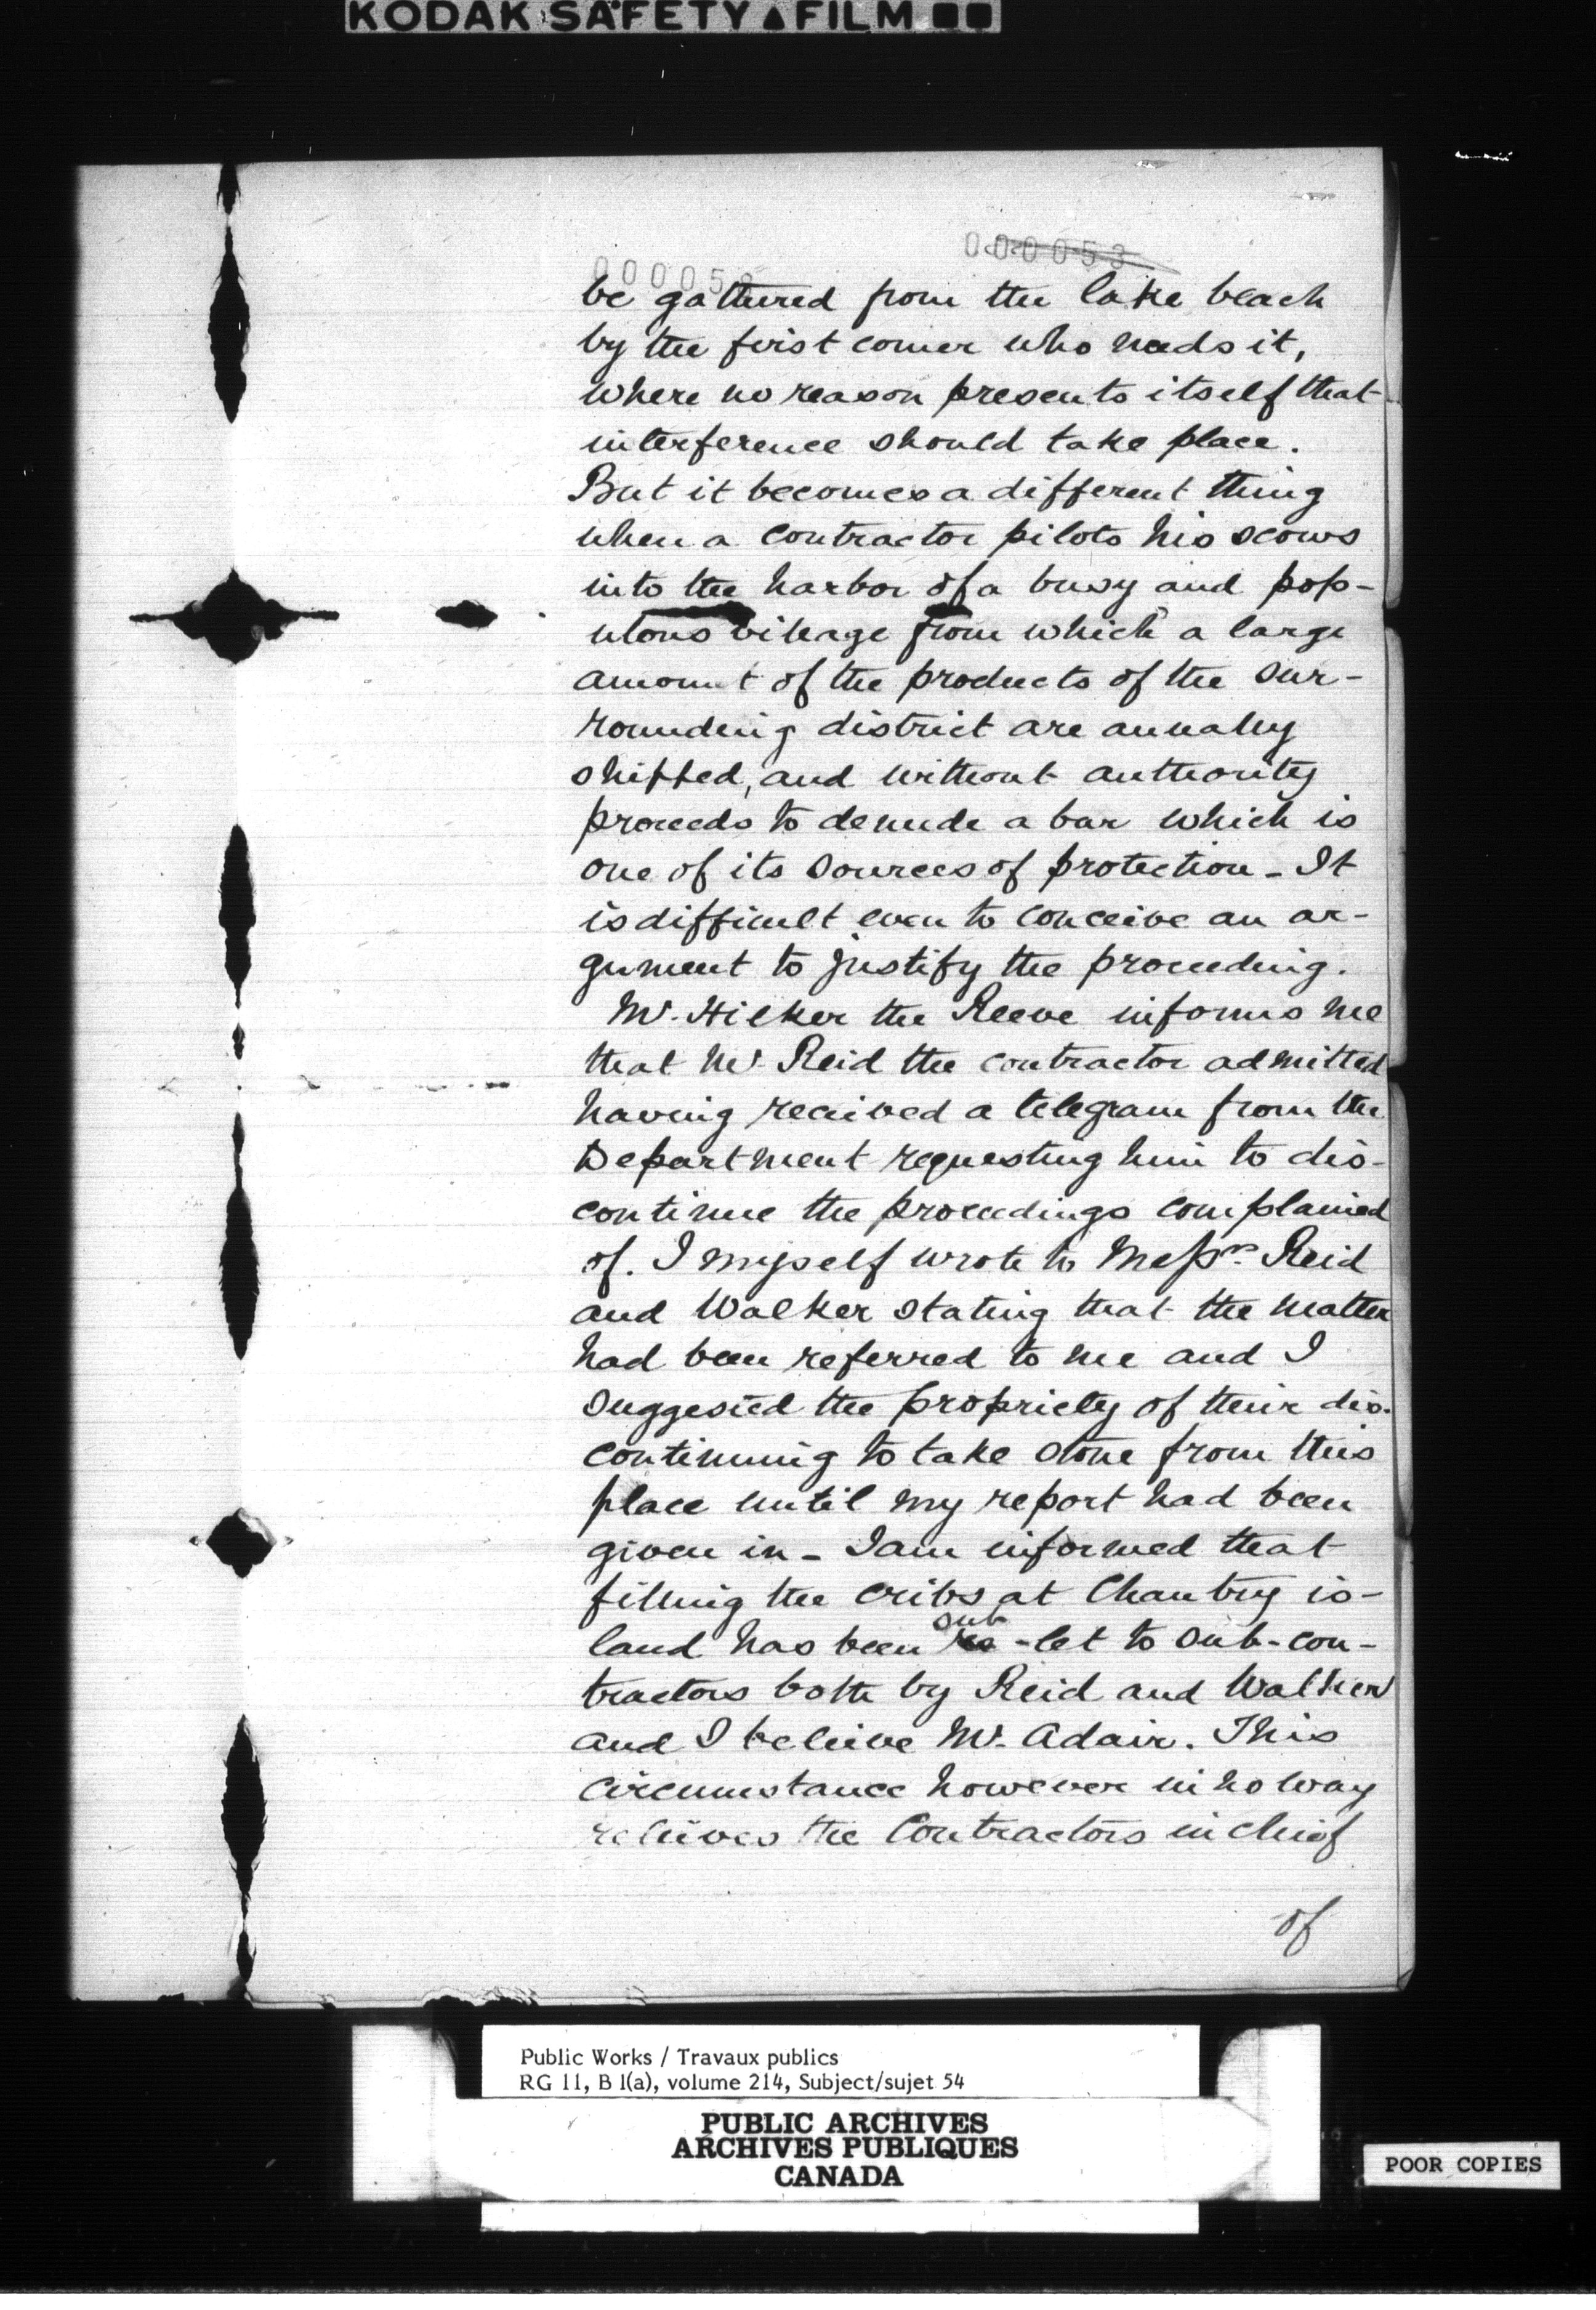 KODAK SAFETY FILM
000053
00005
be gathered from the lake beach
by the first comer who needs it,
where no reason presents itself that
interference should take place.
But it becomes a different thing
when a contractor pilots his scows
into the harbor of a busy and pop-
ulous village from which a large
amount of the products of the sur-
rounding district are annually
shipped, and without authority
proceeds to denude a bar which is
one of its sources of protection - It
is difficult even to conceive an ar-
gument to justify the proceeding.
Mr. Hilker the Reeve informs me
that Mr Reid the contractor admitted
having received a telegram from the
Department requesting him to dis-
continue the proceedings complained
of. I myself wrote to Messrs. Reid
and Walker stating that the matter
had been referred to me and I
suggested the propriety of their dis-
continuing to take stone from this
place until my report had been
given in - I am informed that
filling the cribs at Chantry is-
land has been sub -let to sub-con-
tractors both by Reid and Walker
and I believe Mr. Adair. This
circumstance however in no way
relieves the Contractors in chief
of
Public Works / Travaux publics
RG 11, B 1(a), volume 214, Subject/sujet 54
PUBLIC ARCHIVES
ARCHIVES PUBLIQUES
CANADA
POOR COPIES